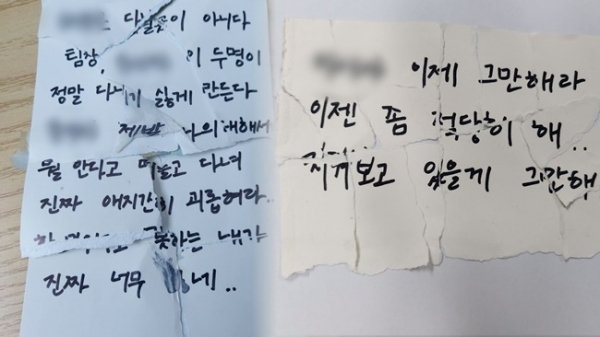 다닐곳이 아니다
팀장, 이 두명이
정말 다니기 싫게 만든다
제발 나의 대해서
뭘 안다고 떠들고 다녀
진짜 애지간히 괴롭혀라
못하는 내가
진짜 너무 네..
이제 그만해라
이젠 좀 적당히 해..
지켜보고 있을게 그만해